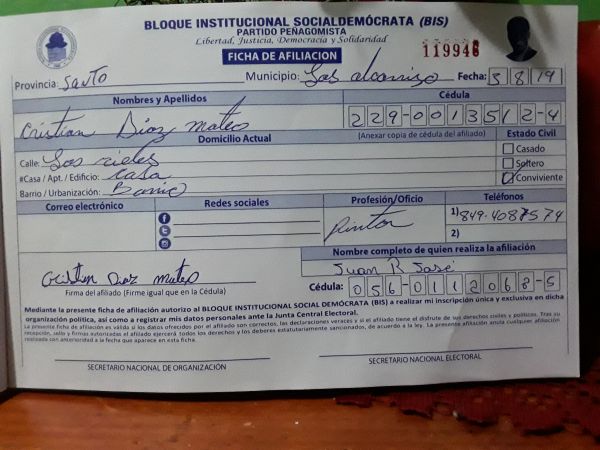 BLOQUE INSTITUCIONAL SOCIALDEMÓCRATA (BIS)
PARTIDO PEÑAGOMISTA
Libertad, Justicia, Democracia y Solidaridad
FICHA DE AFILIACION
119946
Provincia: Santo Municipio: Los alcarrizo Fecha: 3 8 19
Nombres y Apellidos Cédula
Cristian Diaz mateo 229-0013512-4
Domicilio Actual (Anexar copia de cédula del afiliado) Estado Civil
Calle: Los rieles Casado
#Casa / Apt. / Edificio: Casa Soltero
Barrio / Urbanización: Barrio Conviviente
Correo electrónico Redes sociales Profesión/Oficio Teléfonos
Pintor 1) 849-4087574
2)
Nombre completo de quien realiza la afiliación
Cristian Diaz mateo Juan R José
Firma del afiliado (Firme igual que en la Cédula) Cédula: 056-0112068-5
Mediante la presente ficha de afiliación autorizo al BLOQUE INSTITUCIONAL SOCIAL DEMÓCRATA (BIS) a realizar mi inscripción única y exclusiva en dicha
organización política, así como a registrar mis datos personales ante la Junta Central Electoral.
La presente ficha de afiliación es válida si los datos ofrecidos por el afiliado son correctos, las declaraciones veraces y si el afiliado tiene el disfrute de sus derechos civiles y políticos. Tras su
recepción, sello y firmas autorizadas el afiliado ejercerá todos los derechos y los deberes estatutariamente sancionados, de acuerdo a la ley. La presente afiliación anula cualquier afiliación
realizada con anterioridad a la fecha que aparece en esta ficha.
SECRETARIO DE ORGANIZACIÓN SECRETARIO NACIONAL ELECTORAL